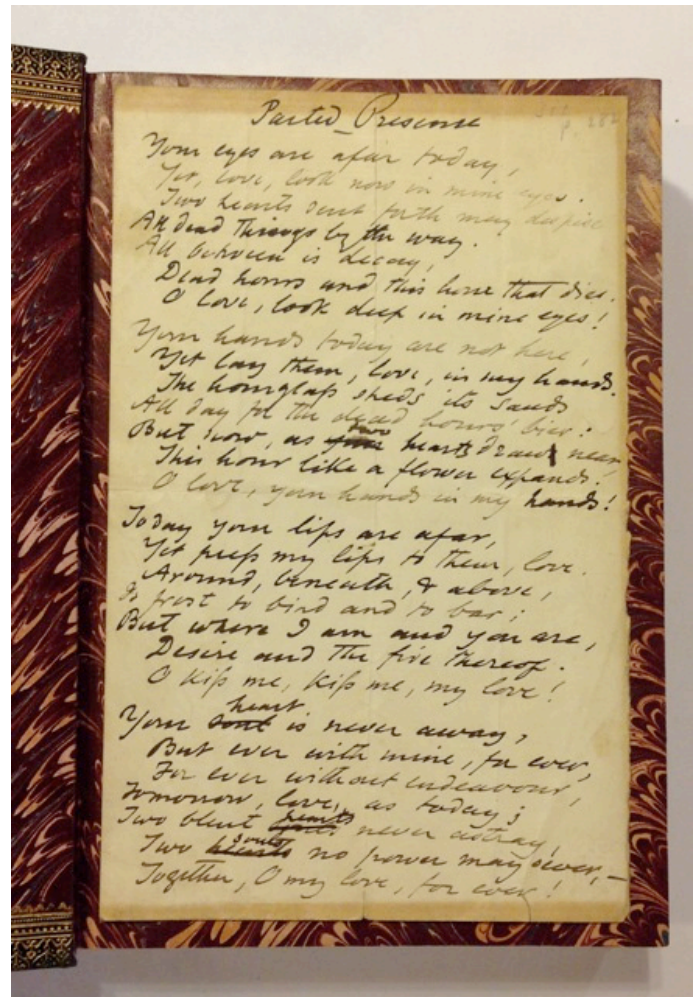 Parted Presence
Your eyes are afar today,
Yet, love, look now in mine eyes.
Two hearts sent forth may despise
All dead things by the way.
All between is decay,
Dead hours and this hour that dies.
O love, look deep in mine eyes!
Your hands today are not here,
Yet lay them, love, in my hands.
The hourglass sheds its sands
All day for the dead hours' bier:
But now, as two hearts draw near,
This hour like a flower expands.
O love, your hands in my hands!
Today your lips are afar,
Yet press my lips to them, love.
Around, beneath, & above,
Is frost to bind and to bar;
But where I am and you are,
Desire and the fire thereof.
O kiss me, kiss me, my love!
Your heart is never away,
But ever with mine, for ever,
For ever without endeavour,
Tomorrow, love, as today;
Two blent hearts never astray,
Two souls no power may sever,—
Together, O my love, for ever!